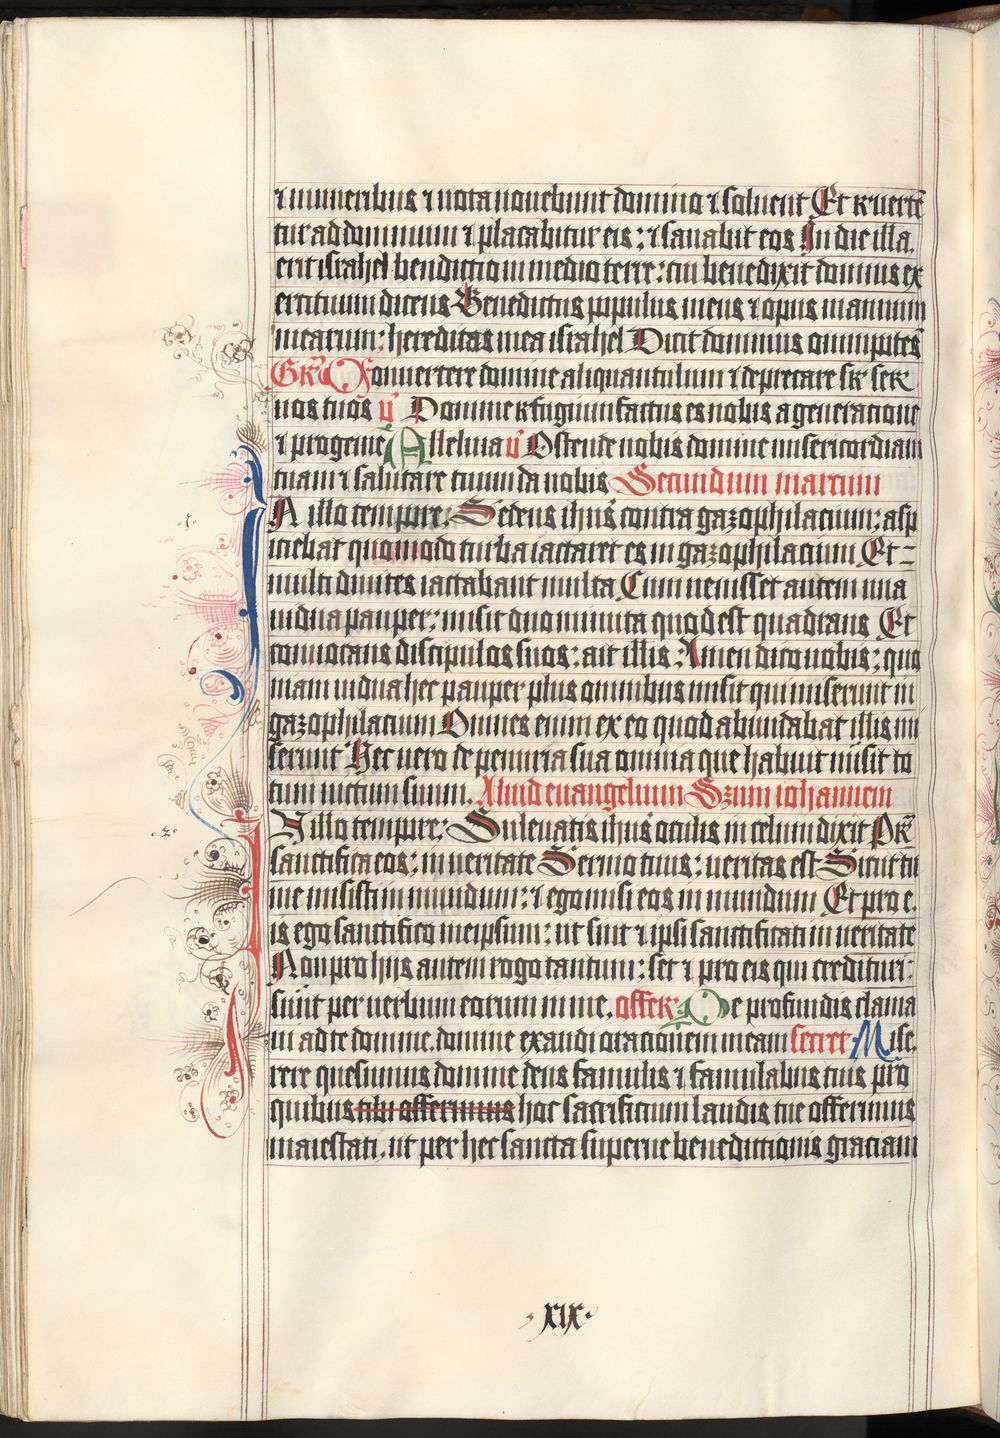 ⁊ muneribus ⁊ uota uouebunt domino ⁊ soluent Et reuertē
tur ad dominum ⁊ placabitur eis: ⁊ sanabit eos In die illa
erit israhel benedictio in medio terre: cui benedixit dominus ex
ercituum dicens Benedictus populus meus ⁊ opus manuum
mearum: hereditas mea israhel Dicit dominus omnipotēs
Gr̄ Conuertere domine aliquantulum ⁊ deprecare super ser
uos tuos v̄ Domine refugium factus es nobis a generatione
⁊ progenie Alleluia v̄ Ostende nobis domine misericordiam
tuam ⁊ salutare tuum da nobis Secundum marcum
In illo tempore: Sedens ihūs contra gazophilacium: asp
iciebat quomodo turba iactaret es in gazophilacium Et -
multi diuites iactabant multa Cum uenisset autem una
uidua pauper: misit duo minuta quod est quadrans Et
conuocans discipulos suos: ait illis: Amen dico uobis: quo
niam uidua hec pauper plus omnibus misit qui miserunt in
gazophilacium Omnes enim ex eo quod abundabat illis mi
serunt Hec uero de penuria sua omnia que habuit misit to
tum uictum suum. Aliud euangelium Sēdum iohannem
.2. In illo tempore: Subleuatis ihūs oculis in celum dixit Pr̄
sanctifica eos: in ueritate Sermo tuus: ueritas est Sicut tu
me misisti in mundum: ⁊ ego misi eos in mundum Et pro e.
is ego sanctifico meipsum: ut sint ⁊ ipsi sanctificati in ueritate
Non pro hijs autem rogo tantum: set ⁊ pro eis qui credituri:
sunt per uerbum eorum in me. offer De profundis clama
ui ad te domine. domine exaudi orationem meam secret Mise.
rere quesumus domine deus famulis ⁊ famulabus tuis pro
quibus tibi offerimus hoc sacrificium laudis tue offerimus
maiestati. ut per hec sancta superne benedictionis graciam
. xix .